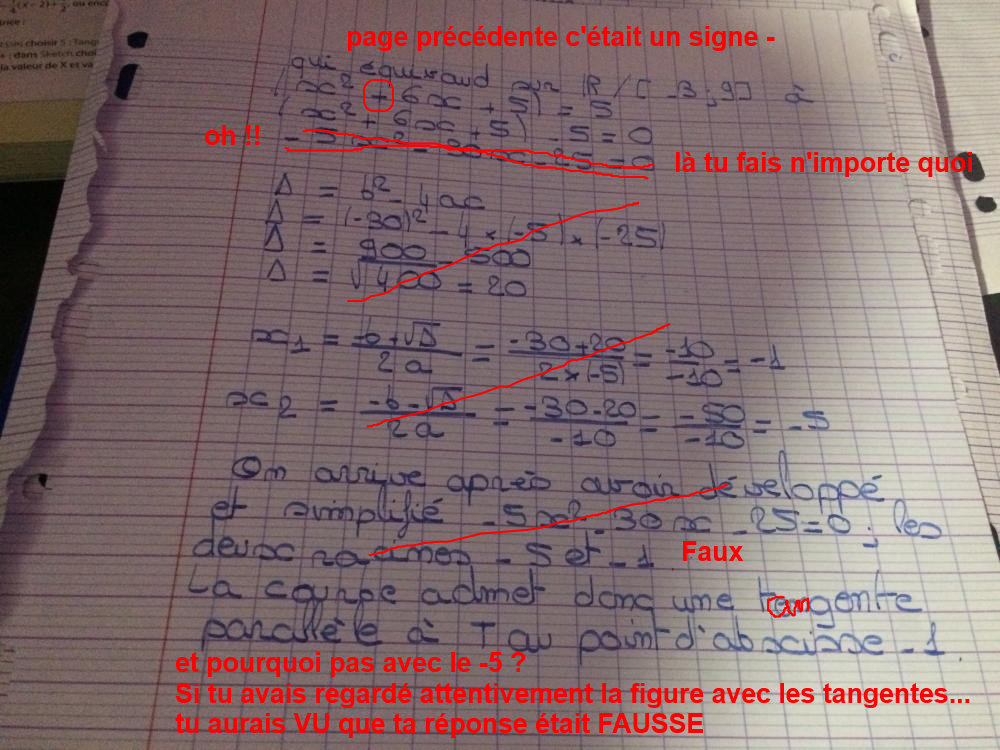 -¼(x-2)+½, ou enc
trice :
choisir 5 : Tang
: dans Sketch choi
la valeur de X et va
page précédente c'était un signe -
qui équivaud sur R / [-3 ; 9] à
(x² + 6x + 5) = 5
(x² + 6x + 5) - 5 = 0
oh !!
- 5x² - 30x - 25 = 0
là tu fais n'importe quoi
Δ = b² - 4ac
Δ = (-30)² - 4 × (-5) × (-25)
Δ = 900 - 500
Δ = √400 = 20
x1 = -b+√Δ / 2a = -30+20 / 2×(-5) = -10 / -10 = -1
x2 = -b-√Δ / 2a = -30-20 / -10 = -50 / -10 = -5
On arrive après avoir développé
et simplifié -5x² - 30x - 25 = 0 ; les
deux racines -5 et -1 Faux
La courbe admet donc une tangente
parallèle à T au point d'abscisse -1
et pourquoi pas avec le -5 ?
Si tu avais regardé attentivement la figure avec les tangentes...
tu aurais VU que ta réponse était FAUSSE